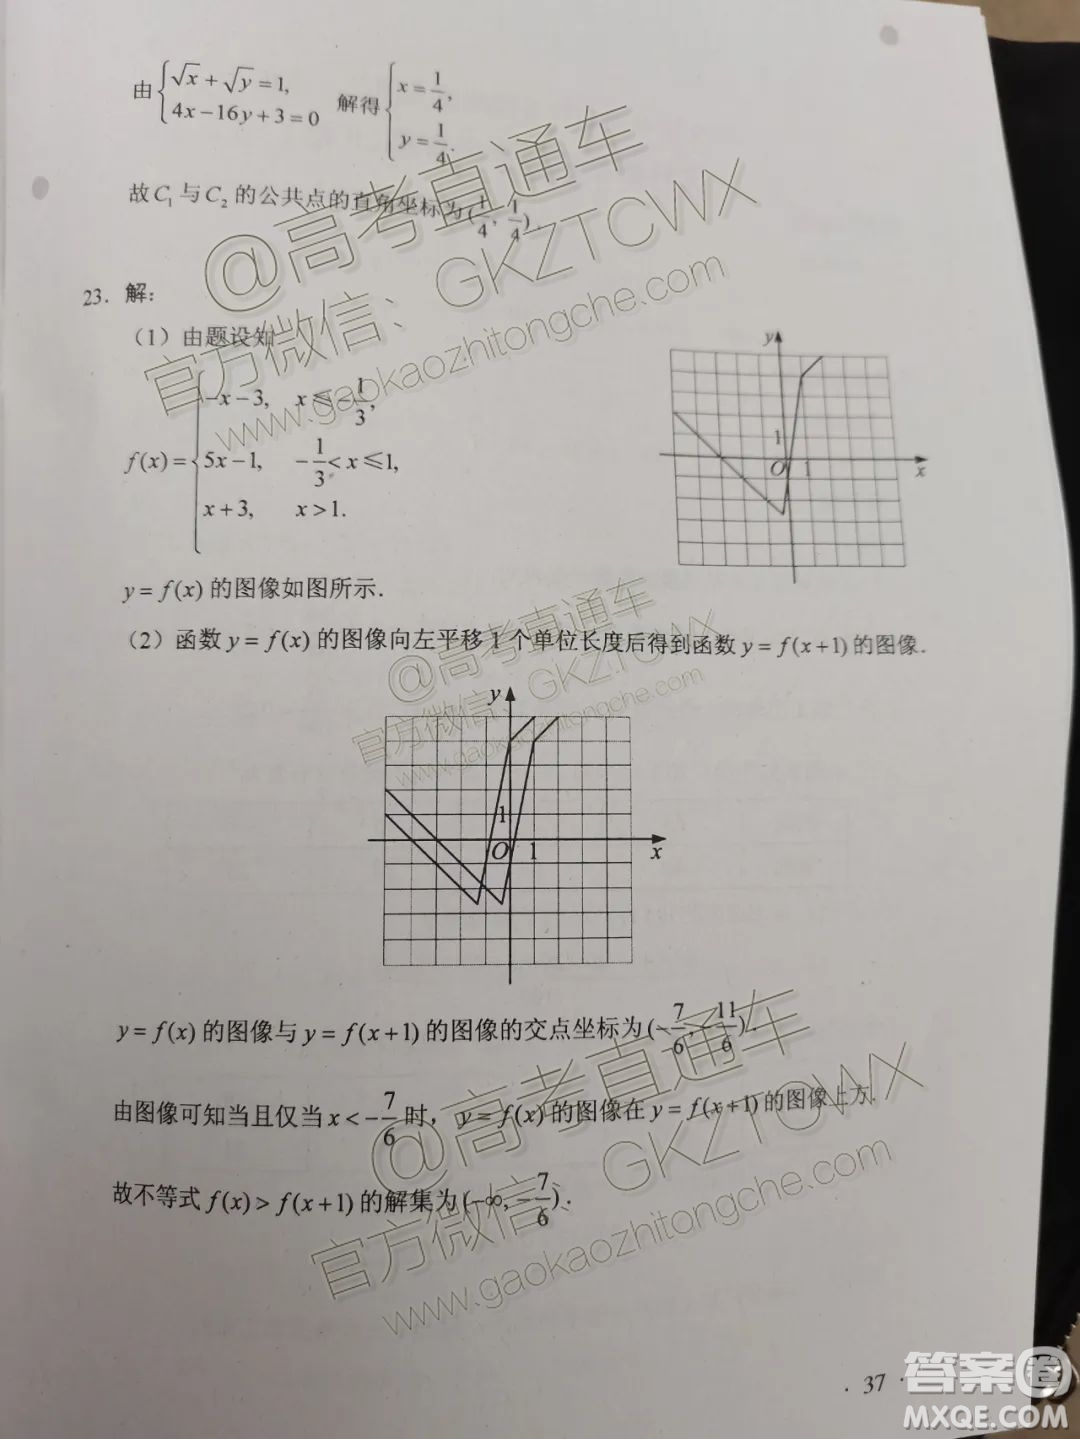 由{√x+√y=1, 4x−16y+3=0 解得{x=1/4, y=1/4.
故C₁与C₂的公共点的直角坐标为(1/4, 1/4).
@高考直通车
官方微信、GKZTCWX
www.gaokaozhitongche.com
23. 解：
（1）由题设知
f(x)={
−x−3, x≤−1/3,
5x−1, −1/3<x≤1,
x+3, x>1.
y
1
O 1 x
y=f(x)的图像如图所示.
（2）函数y=f(x)的图像向左平移1个单位长度后得到函数y=f(x+1)的图像.
@高考直通车
官方微信、GKZTCWX
www.gaokaozhitongche.com
y
1
O 1 x
y=f(x)的图像与y=f(x+1)的图像的交点坐标为(−7/6, −11/6).
由图像可知当且仅当x<−7/6时，y=f(x)的图像在y=f(x+1)的图像上方.
故不等式f(x)>f(x+1)的解集为(−∞, −7/6).
@高考直通车
官方微信、GKZTCWX
www.gaokaozhitongche.com
· 37 ·
答案卷
MXQE.COM